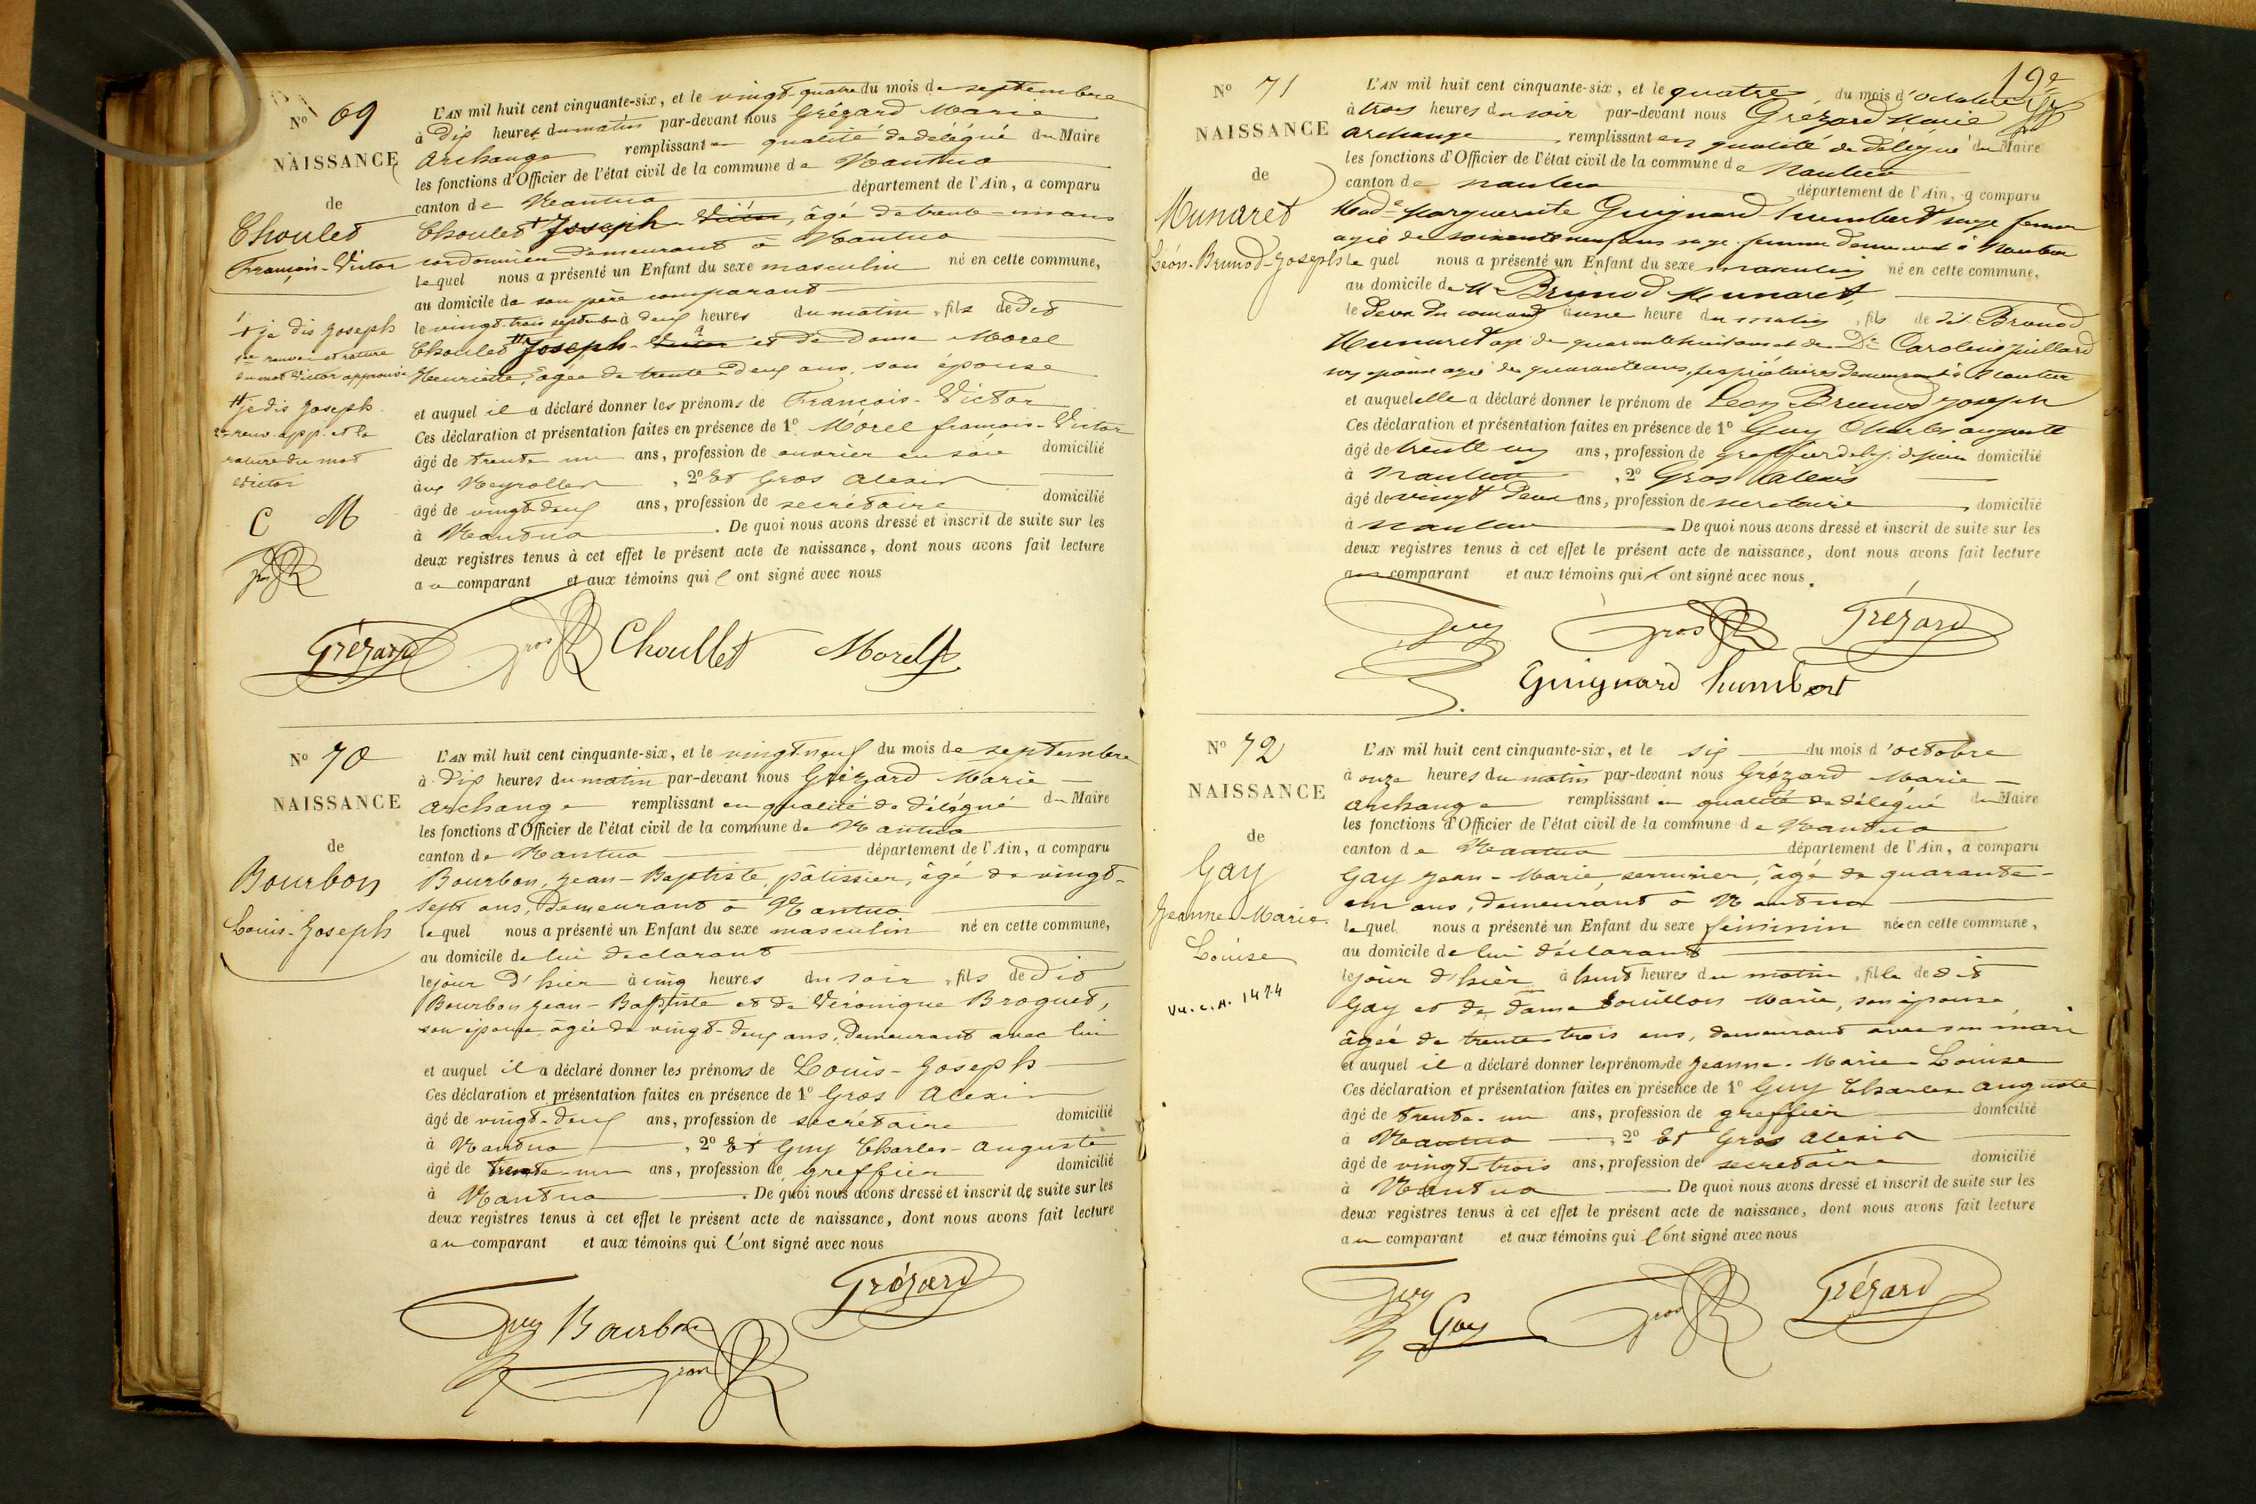 Nº 69
NAISSANCE
de
Choulet
François-Victor
† je dis Joseph
1er renvoi et rature
du mot Victor approuvé
†† je dis Joseph
2e renv. app. et la
rature du mot
Victor
C M
L'AN mil huit cent cinquante-six, et le vingt-quatre du mois de septembre
à dix heures du matin par-devant nous Grézard Marie
Archange remplissant en qualité de délégué du Maire
les fonctions d'Officier de l'état civil de la commune de Nantua
canton de Nantua département de l'Ain, a comparu
Choulet † Joseph Victor, âgé de trente-un ans
cordonnier demeurant à Nantua
lequel nous a présenté un Enfant du sexe masculin né en cette commune,
au domicile de son père comparant
le vingt-trois septembre à deux heures du matin, fils de dit
Choulet †† Joseph-Victor et de dame Morel
Henriette, âgée de trente-deux ans, son épouse
et auquel il a déclaré donner les prénoms de François-Victor
Ces déclaration et présentation faites en présence de 1º Morel françois-Victor
âgé de trente un ans, profession de ouvrier en soie domicilié
aux Neyrolles, 2º Et Gros Alexis
âgé de vingt deux ans, profession de secrétaire domicilié
à Nantua. De quoi nous avons dressé et inscrit de suite sur les
deux registres tenus à cet effet le présent acte de naissance, dont nous avons fait lecture
au comparant et aux témoins qui l'ont signé avec nous
Grézard Gros Choullet Morel
Nº 70
NAISSANCE
de
Bourbon
Louis-Joseph
L'AN mil huit cent cinquante-six, et le vingt neuf du mois de septembre
à dix heures du matin par-devant nous Grézard Marie
Archange remplissant en qualité de délégué du Maire
les fonctions d'Officier de l'état civil de la commune de Nantua
canton de Nantua département de l'Ain, a comparu
Bourbon, Jean-Baptiste, pâtissier, âgé de vingt-
sept ans, demeurant à Nantua
lequel nous a présenté un Enfant du sexe masculin né en cette commune,
au domicile de lui déclarant
le jour d'hier à cinq heures du soir, fils de dit
Bourbon Jean-Baptiste et de Véronique Broguet,
son épouse, âgée de vingt-deux ans, demeurant avec lui
et auquel il a déclaré donner les prénoms de Louis-Joseph
Ces déclaration et présentation faites en présence de 1º Gros Alexis
âgé de vingt-deux ans, profession de secrétaire domicilié
à Nantua, 2º Et Guy Charles-Auguste
âgé de trente-un ans, profession de greffier domicilié
à Nantua. De quoi nous avons dressé et inscrit de suite sur les
deux registres tenus à cet effet le présent acte de naissance, dont nous avons fait lecture
au comparant et aux témoins qui l'ont signé avec nous
Grézard
Guy Bourbon
Gros
19e
Nº 71
NAISSANCE
de
Munaret
Léon-Brunod-Joseph
L'AN mil huit cent cinquante-six, et le quatre du mois d'octobre
à trois heures du soir par-devant nous Grézard Marie
Archange, remplissant en qualité de délégué du Maire
les fonctions d'Officier de l'état civil de la commune de Nantua
canton de nantua département de l'Ain, a comparu
Made Marguerite Guignard humbert sage femme
agée de soixante neuf ans sage-femme demeurant à Nantua
lequel nous a présenté un Enfant du sexe masculin né en cette commune,
au domicile de Mr Brunod Munaret,
le deux du courant à une heure du matin, fils de dit Brunod
Munaret agé de quarante huit ans et de De Caroline Juillard
son épouse agée de quarante ans, propriétaires demeurant à Nantua
et auquel elle a déclaré donner le prénom de Leon Brunod Joseph
Ces déclaration et présentation faites en présence de 1º Guy Charles auguste
âgé de trente un ans, profession de greffier de la j. de paix domicilié
à Nantua, 2º Gros Alexis
âgé de vingt deux ans, profession de secretaire, domicilié
à nantua De quoi nous avons dressé et inscrit de suite sur les
deux registres tenus à cet effet le présent acte de naissance, dont nous avons fait lecture
au comparant et aux témoins qui l'ont signé avec nous.
Guy Gros Grézard
Guignard humbert
Nº 72
NAISSANCE
de
Gay
Jeanne-Marie
Louise
Vu. c. A. 1474
L'AN mil huit cent cinquante-six, et le six du mois d'octobre
à onze heures du matin par-devant nous Grézard Marie
Archange remplissant en qualité de délégué du Maire
les fonctions d'Officier de l'état civil de la commune de Nantua
canton de Nantua département de l'Ain, a comparu
Gay Jean-Marie, serrurier, âgé de quarante-
un ans, demeurant à Nantua
lequel nous a présenté un Enfant du sexe féminin née en cette commune,
au domicile de lui déclarant
le jour d'hier à huit heures du matin, fille de dit
Gay et de dame Bouillon Marie, son épouse
âgée de trente-trois ans, demeurant avec son mari
et auquel il a déclaré donner les prénoms de Jeanne-Marie-Louise
Ces déclaration et présentation faites en présence de 1º Guy Charles-Auguste
âgé de trente-un ans, profession de greffier domicilié
à Nantua, 2º Et Gros Alexis
âgé de vingt-trois ans, profession de secrétaire domicilié
à Nantua De quoi nous avons dressé et inscrit de suite sur les
deux registres tenus à cet effet le présent acte de naissance, dont nous avons fait lecture
au comparant et aux témoins qui l'ont signé avec nous
Guy Gay Gros Grézard